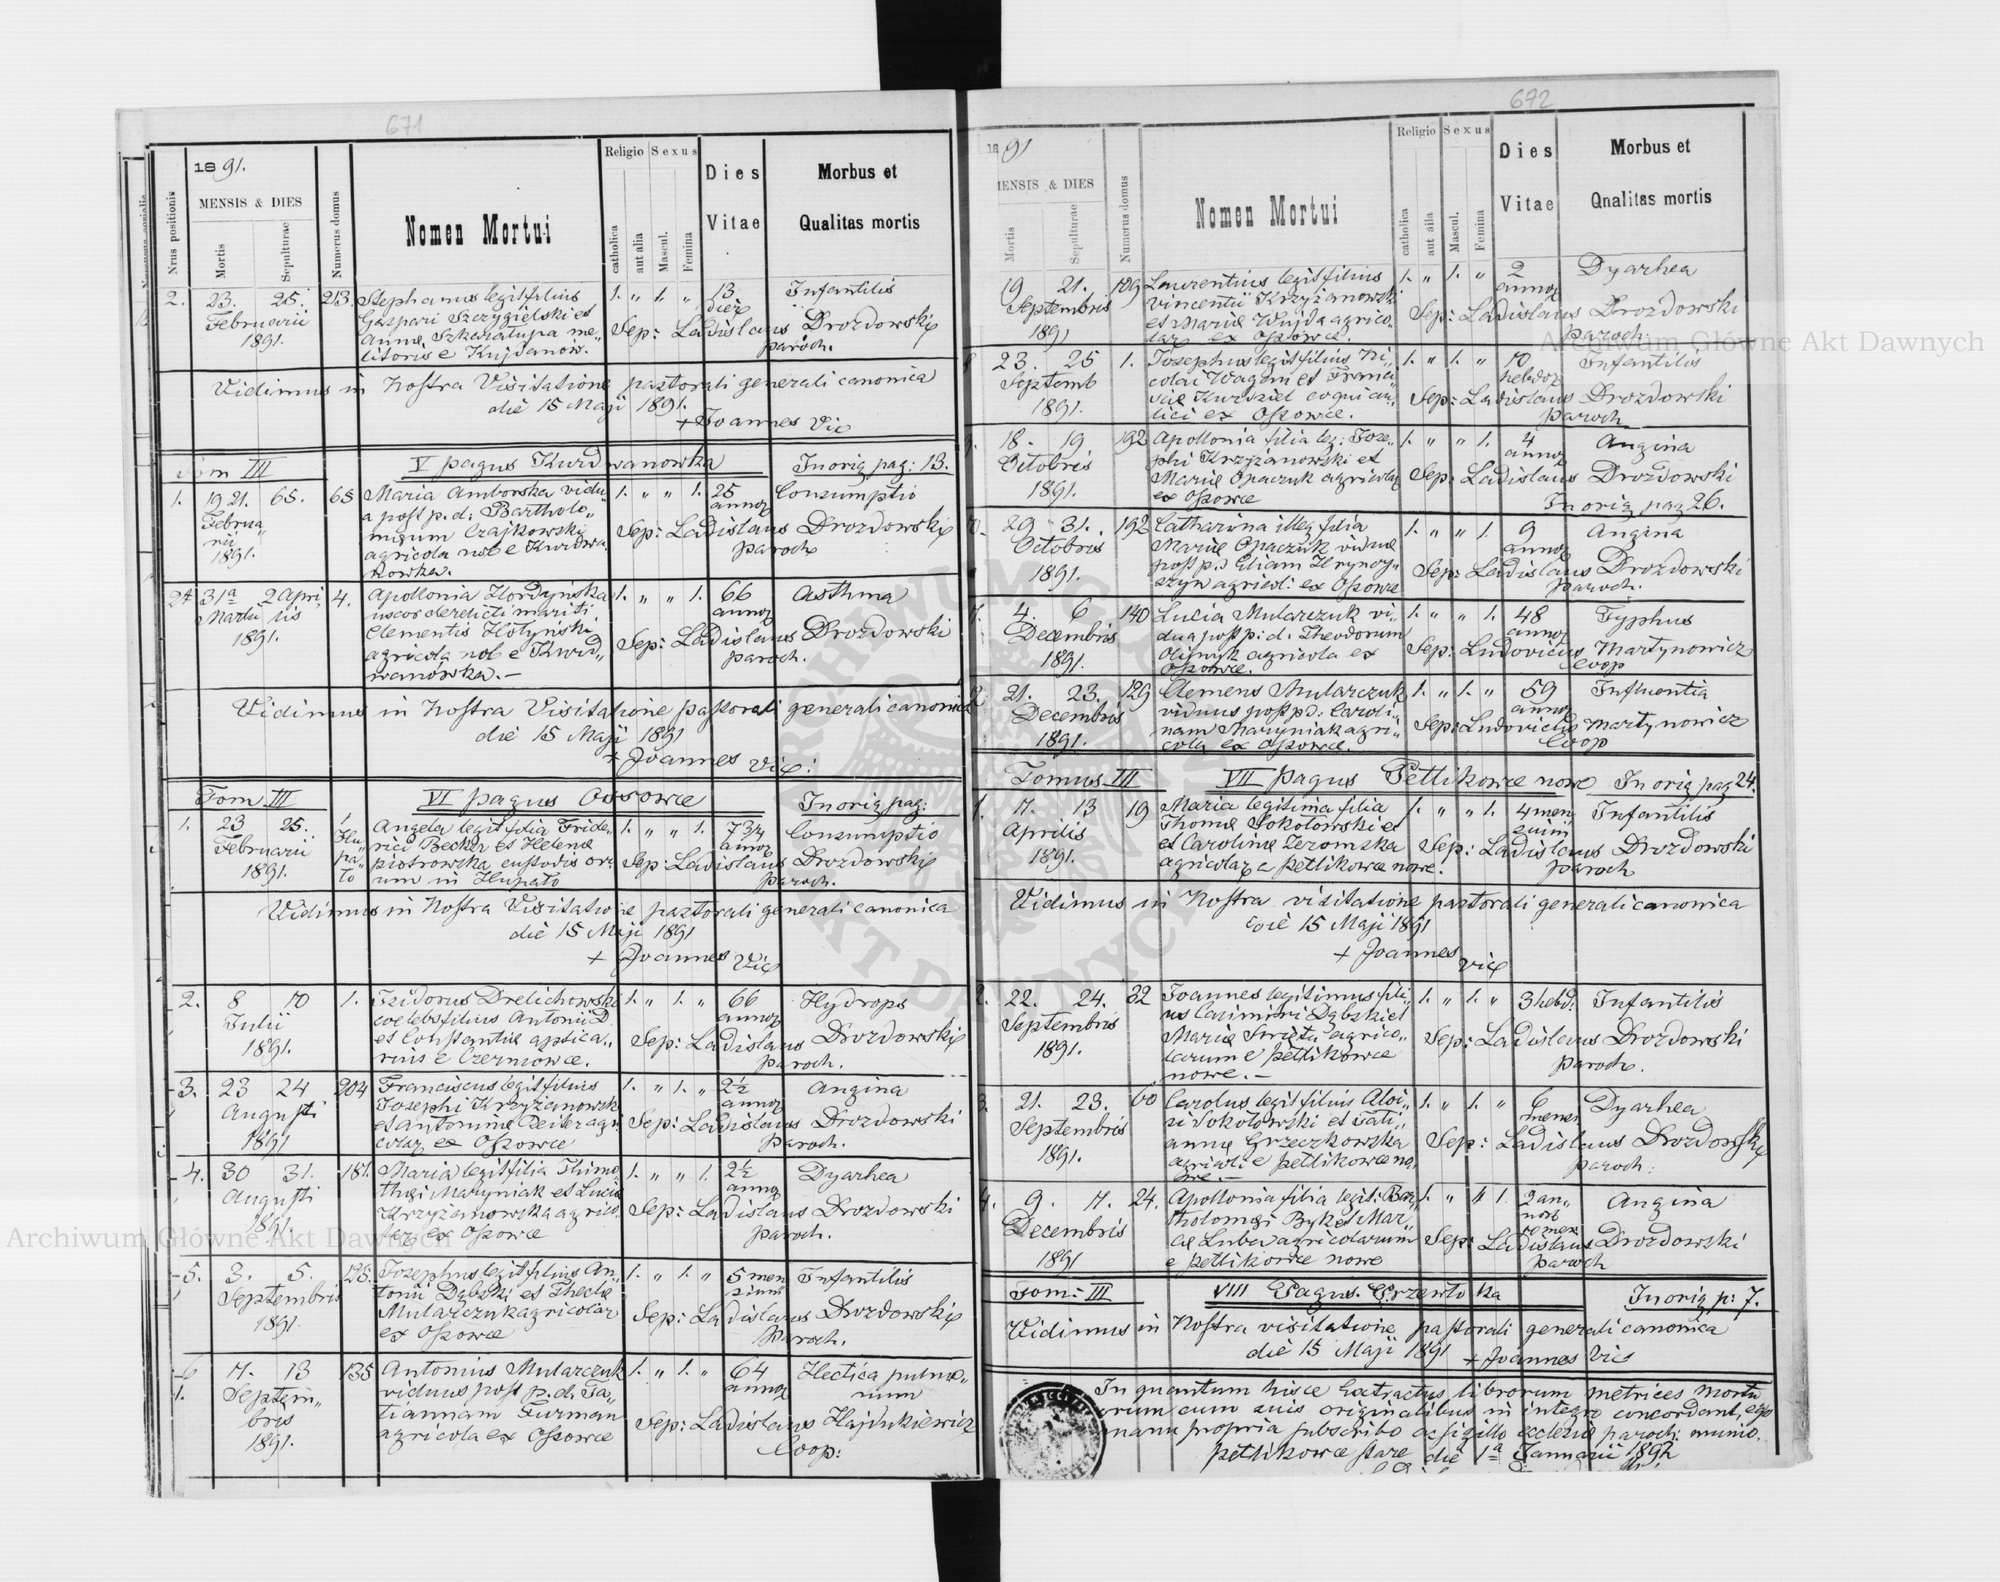 671
1891.
MENSIS & DIES
Nrus positionis
Mortis
Sepulturae
Numerus domus
Nomen Mortui
Religio
Sexus
catholica
aut alia
Mascul.
Femina
Dies
Vitae
Morbus et
Qualitas mortis
2. 23. 25. 213. Stephanus legit filius 1. „ 1. „ 13 Infantilis
Februarii Gaspari Szczygielski et dier
1891. Anna Szkaratupa me„ Sep: Ladislaus Drozdowski
litoris e Kujdanów. paroch.
Vidimus in Nostra Visitatione pastorali generali canonica
die 15 Maji 1891.
+ Joannes Vic
Tom III V pagus Kurdwanowka In orig pag: 13.
1. 19 21. 65. 65 Maria Amborska vidu„ 1. „ „ 1. 25 Consumptio
Februa„ a post p. d: Bartholo„ annor
rii meum Czajkowski Sep: Ladislaus Drozdowski
1891. agricola nob e Kurdwa paroch
nowka.
2 31a 2 Apri 4. Apollonia Hordyńska 1. „ „ 1. 66 Asthma
Martii lis uxor derelicti mariti annor
1891. Clementis Hołyński Sep: Ladislaus Drozdowski
agricola nob e Kurd„ paroch.
wanówka. —
Vidimus in Nostra Visitatione pastorali generali canonica
die 15 Maji 1891
+ Joannes Vic:
Tom III VI pagus Ossowce In orig pag:
1. 23 25. 1 Angela legit filia Fride„ 1. „ „ 1. 7 3/4 Consumptio
Februarii Hu„ rici Becker et Helena annor
1891. pa„ Piotrowska custodis or„ Sep: Ladislaus Drozdowski
to um in Hupato paroch.
Vidimus in Nostra Visitatione pastorali generali canonica
die 15 Maji 1891
+ Joannes Vic
2. 8 10 1. Izidorus Drelichowski 1. „ 1. „ 66 Hydrops
Julii coelebs filius Antonii D annor
1891. et Constantia Sep: Ladislaus Drozdowski
rius e Czerniówce. paroch.
3. 23 24 204 Franciscus legit filius 1. „ 1. „ 2½ Angina
Augusti Josephi Krzyżanowski annor
1891 et Antonina Reiter agri Sep: Ladislaus Drozdowski
colar ex Ossowce paroch.
4. 30 31. 181. Maria legit filia Thimo 1. „ „ 1. 2½ Dyarhea
Augusti thei Maryniak et Lucia annor
1891. Krzyżanowska agrico„ Sep: Ladislaus Drozdowski
lar ex Ossowce paroch.
5. 3. 5. 125. Josephus legit filius An„ 1. „ 1. „ 5 men Infantilis
Septembris tonii Dąbski et Thecla sium
1891. Mularczuk agricolar Sep: Ladislaus Drozdowski
ex Ossowce paroch.
6 11. 13 135 Antonius Mularczuk 1. „ 1. „ 64 Hectica pulmo„
Septem„ viduus post p. d: Ta„ annor num
bris tiannam Furman Sep: Ladislaus Hajdukiewicz
1891. agricola ex Ossowce Coop:
672
1891
MENSIS & DIES
Mortis
Sepulturae
Numerus domus
Nomen Mortui
Religio
Sexus
catholica
aut alia
Mascul.
Femina
Dies
Vitae
Morbus et
Qnalitas mortis
19 21. 189 Laurentius legit filius 1. „ 1. „ 2 Dyarhea
Septembris Vincentii Krzyżanowski annor
1891 et Mariæ Wujda agrico„ Sep: Ladislaus Drozdowski
lar ex Ossowce. paroch:
8 23. 25 1. Josephus legit filius Ni„ 1. „ 1. „ 10 Infantilis
Septemb colai Wagon et Franci„ hebdor
1891. Kurdziel coqui Sep: Ladislaus Drozdowski
lici ex Ossowce. paroch
9. 18. 19 192 Apollonia filia leg: Jose„ 1. „ „ 1. 4 Angina
Octobris phi Krzyżanowski et annor
1891. Mariæ Opaczuk agricolar Sep: Ladislaus Drozdowski
ex Ossowce In orig pag 26.
10. 29 31. 192 Catharina illeg filia 1. „ „ 1. 9 Angina
Octobris Mariæ Opaczuk viduæ annor
1891. post p. d Eliam Hryncy„ Sep: Ladislaus Drozdowski
szyn agricol: ex Ossowce paroch.
11. 4. 6 140 Lucia Mularczuk vi„ 1. „ „ 1. 48 Typhus
Decembris dua post p: d: Theodorum annor
1891. Olijnyk agricola ex Sep: Ludovicus Martynowicz
Ossowce. Coop
12. 21. 23. 129 Clemens Mularczuk 1. „ 1. „ 59 Influentia
Decembris viduus post p d: Caroli„ annor
1891. nam Maryniak agri„ Sep: Ludovicus Martynowicz
cola ex Ossowce. Coop
Tomus III VII pagus Petlikowce nowe In orig pag 24.
1. 11. 13 19 Maria legitima filia 1. „ „ 1. 4 men Infantilis
Aprilis Thomæ Sokołowski et sium
1891. et Carolinæ Zeromska Sep: Ladislaus Drozdowski
agricolar e Petlikowce nowe. paroch
Vidimus in Nostra visitatione pastorali generali canonica
die 15 Maji 1891
+ Joannes Vic
2. 22. 24. 32 Joannes legitimus fili„ 1. „ 1. „ 3 hebd: Infantilis
Septembris us Casimiri Dąbski et
1891. Maria Święta agrico„ Sep: Ladislaus Drozdowski
larum e Petlikowce paroch.
nowe. —
3. 21. 23. 60 Carolus legit filius Aloi„ 1. „ 1. „ 6 Dyarhea
Septembris si Sokołowski et Tati„ mens
1891. annæ Grzeczkowska Sep: Ladislaus Drozdowski
agricol: e Petlikowce no„ paroch:
we. —
4. 9. 11. 24. Apollonia filia legit: Bar„ 1. „ „ 1. 2 an„ Angina
Decembris tholomei Byk et Mar„ nor
1891 Luba agricolarum Sep: Ladislaus Drozdowski
e Petlikowce nowe paroch
Tom: III VIII Pagus. Brzewłoka In orig p: 7.
Vidimus in Nostra visitatione pastorali generali canonica
die 15 Maji 1891 + Joannes Vic
In quantum hisce Extractus librorum metrices mortu
orum cum suis originalibus in integro concordant, ego
manu propria subscribo ac sigillo ecclesiæ paroch: munio.
Petlikowce stare die 1a Januarii 1892.
Archiwum Główne Akt Dawnych
Archiwum Główne Akt Dawnych